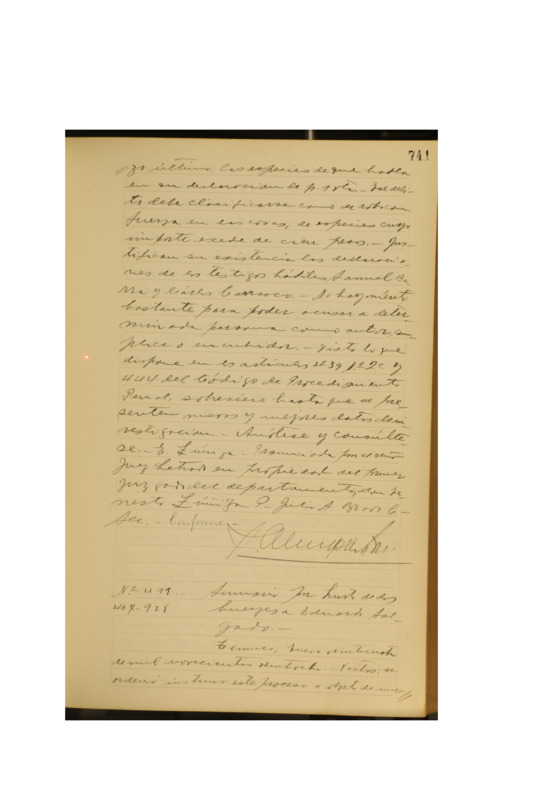 741
zo último, las especies de que habla
en su declaracion de p. 1 vta. Ese deli-
to debe clasificarse como de robo con
fuerza en las cosas, de especies cuyo
importe exceda de cien pesos. - Jus-
tifican su existencia las declaracio-
nes de los testigos hábiles Samuel
y Carlos Carrasco. - No hay mérito
bastante para poder acusar a deter-
minada persona como autor, cóm-
plice o encubridor. - Visto lo que
dispone en los artículos 439 1º 2º y
444 del Código de Procedimiento
Penal, sobreseese hasta que se pre-
senten nuevos y mejores datos de in-
vestigacion. - Anótese y consúlte-
se. - E. Zúñiga. - Pronunciada por el señor
Juez Letrado en propiedad del primer
juzgado del departamento, don Er-
nesto Zúñiga P. Julio A. Bravo C.
Sec. - Conforme. -
Sumario por hurto de dos
bueyes a Eduardo Sal-
gado. -
Temuco, veintiocho
de mil novecientos veintiocho. - Vistos: se
ordenó instruir este proceso a objeto de